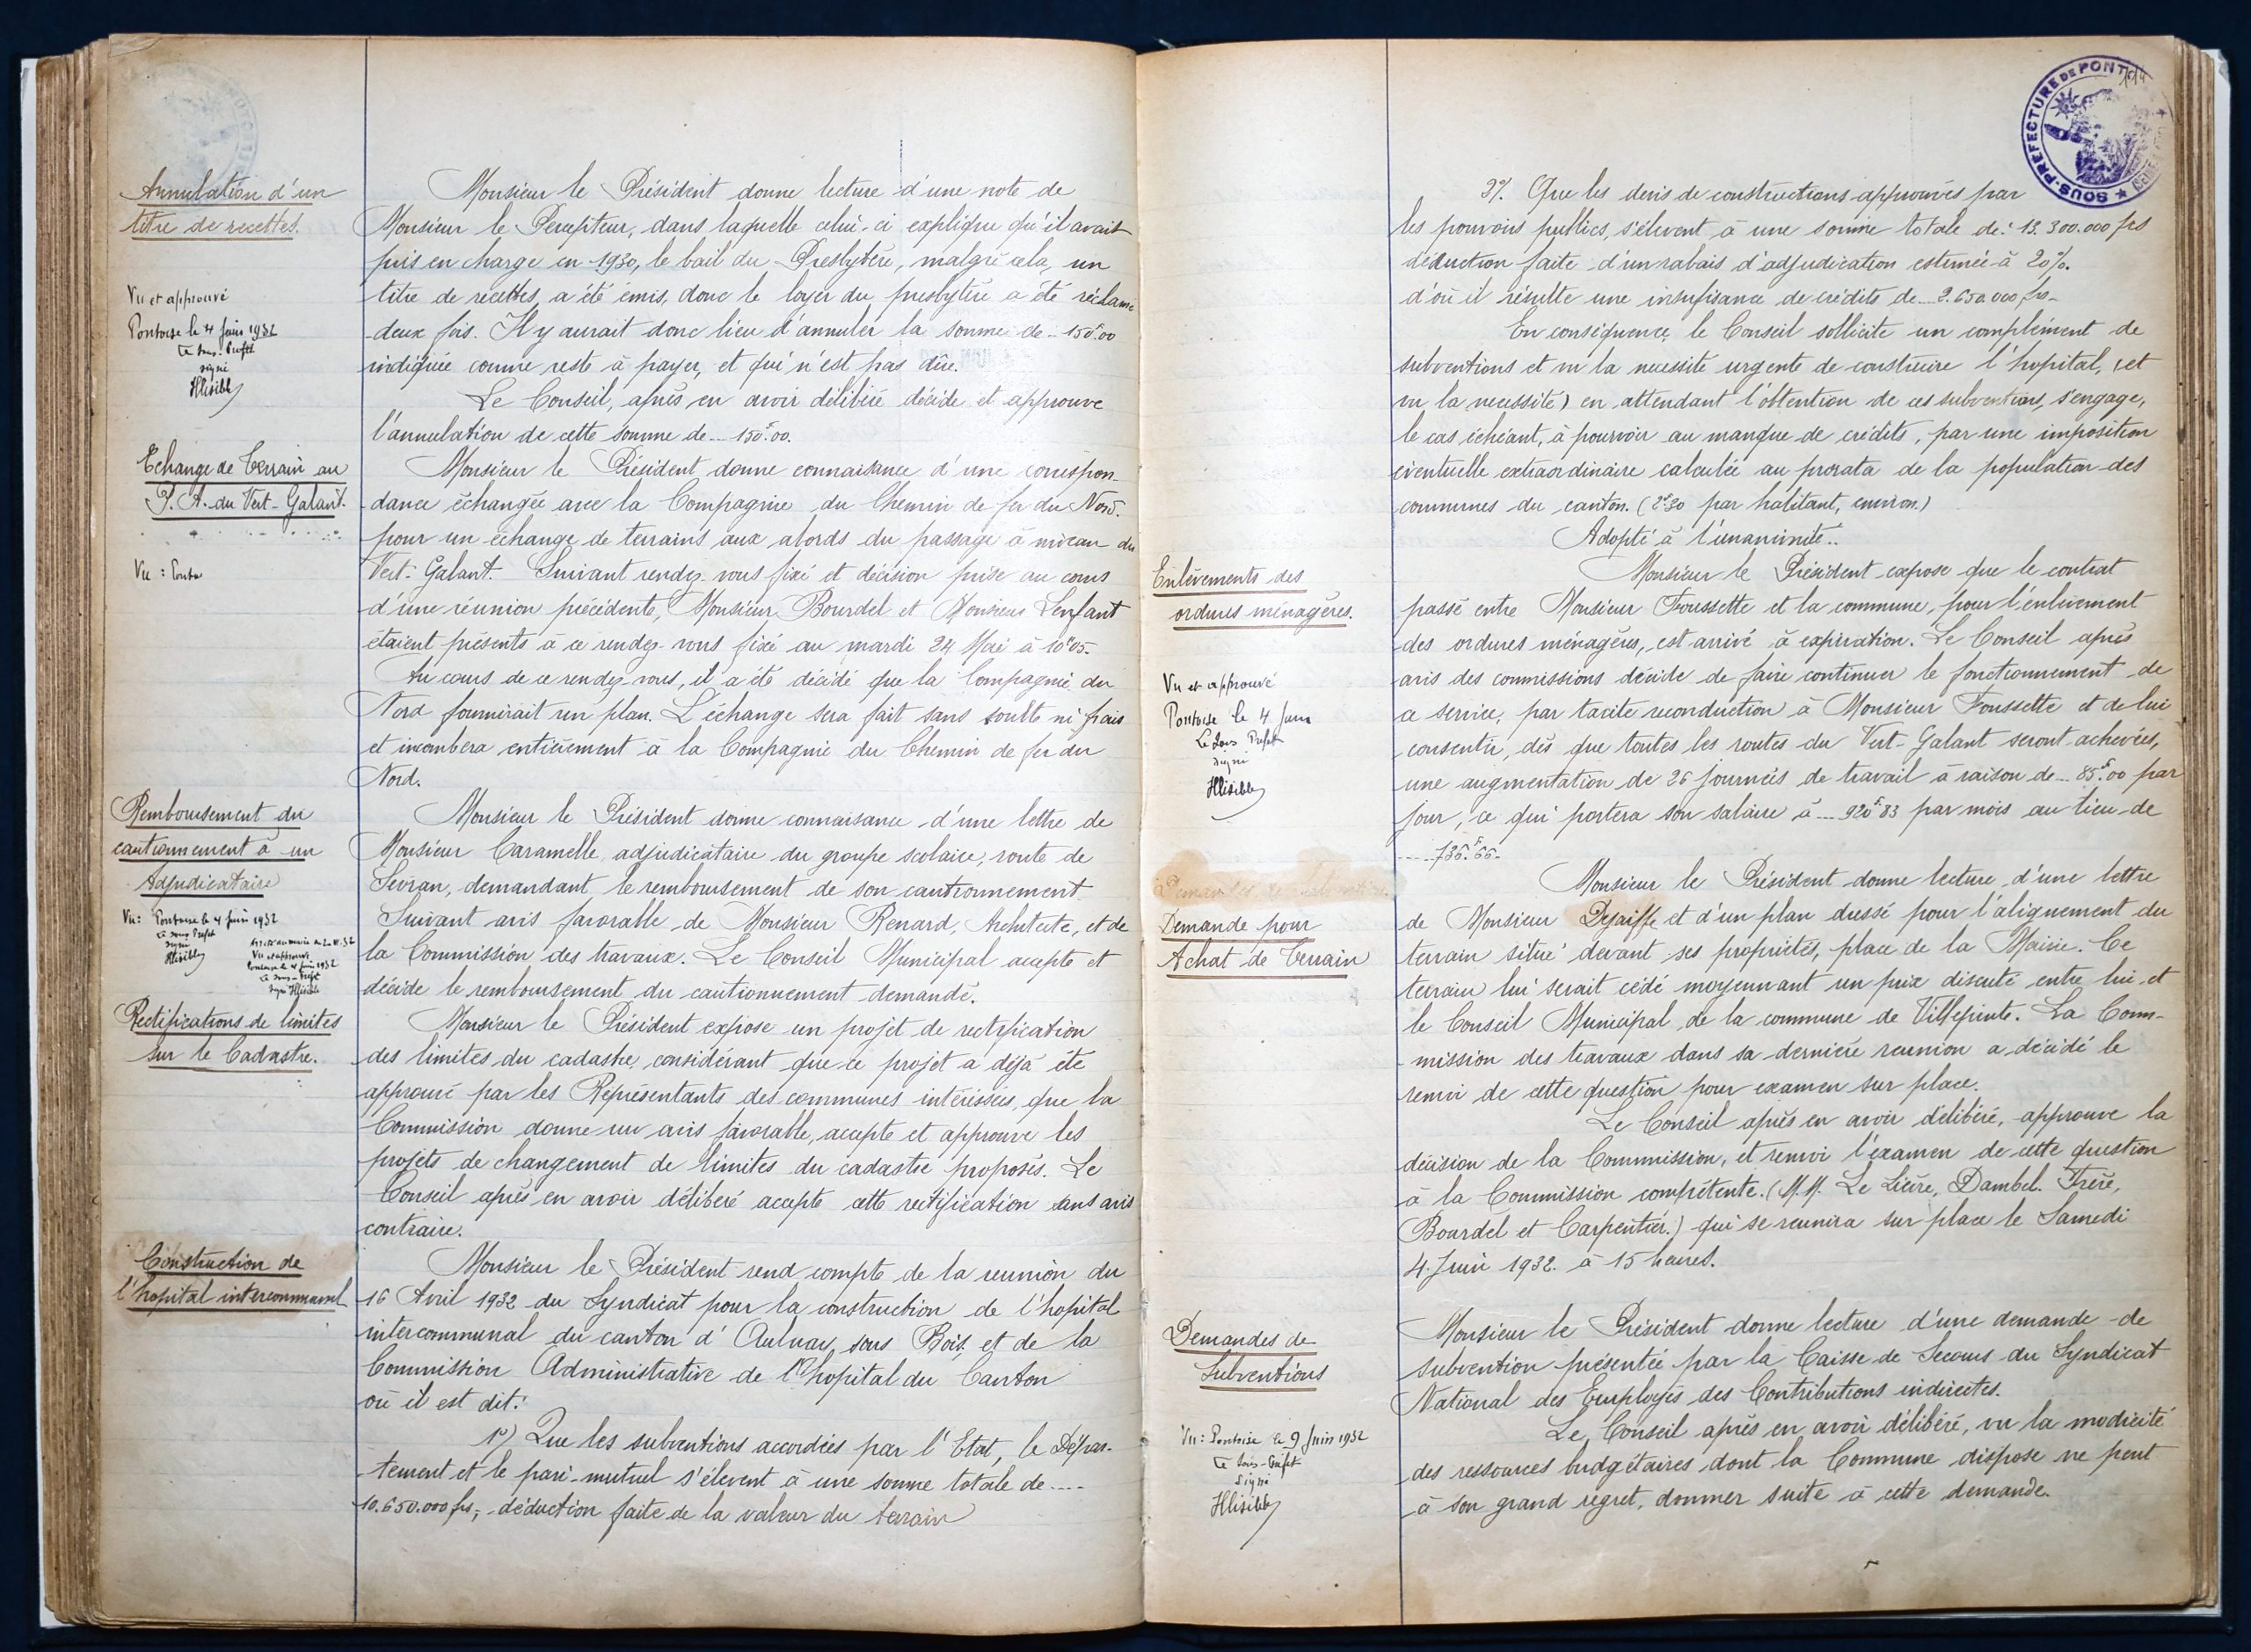 Annulation d'un
titre de recettes.
Monsieur le Président donne lecture d'une note de
Monsieur le Percepteur, dans laquelle celui-ci explique qu'il avait
pris en charge en 1930, le bail du Presbytère, malgré cela, un
titre de recettes a été émis, donc le loyer du presbytère a été réclamé
deux fois. Il y aurait donc lieu d'annuler la somme de 150f.00
indiquée comme reste à payer, et qui n'est pas dûe.
Le Conseil, après en avoir délibéré décide et approuve
l'annulation de cette somme de 150f.00.
Vu et approuvé
Pontoise le 4 Juin 1932
Le Sous-Préfet
signé
Illisible
Echange de Terrain au
P. A. du Vert-Galant.
Vu : Ponto
Monsieur le Président donne connaissance d'une correspon-
dance échangée avec la Compagnie du Chemin de fer du Nord.
pour un échange de terrains aux abords du passage à niveau du
Vert-Galant. Suivant rendez-vous fixé et décision prise au cours
d'une réunion précédente, Monsieur Bourdel et Monsieur Lenfant
étaient présents à ce rendez-vous fixé au mardi 24 Mai à 10h05.
Au cours de ce rendez-vous, il a été décidé que la Compagnie du
Nord fournirait un plan. L'échange sera fait sans soulte ni frais
et incombera entièrement à la Compagnie du Chemin de fer du
Nord.
Remboursement du
cautionnement à un
Adjudicataire
Vu: Pontoise le 4 Juin 1932
Le Sous Préfet
signé
Illisible
Vu et approuvé
Pontoise le 4 Juin 1932
Le Sous-Préfet
signé Illisible
Monsieur le Président donne connaissance d'une lettre de
Monsieur Caramelle, adjudicataire du groupe scolaire, route de
Sevran, demandant le remboursement de son cautionnement.
Suivant avis favorable de Monsieur Renard, Architecte, et de
la Commission des travaux. Le Conseil Municipal accepte et
décide le remboursement du cautionnement demandé.
Rectifications de limites
sur le Cadastre.
Monsieur le Président expose un projet de rectification
des limites du cadastre, considérant que ce projet a déjà été
approuvé par les Représentants des communes intéressées, que la
Commission donne un avis favorable, accepte et approuve les
projets de changement de limites du cadastre proposés. Le
Conseil après en avoir délibéré accepte cette rectification sans avis
contraire.
Construction de
l'hopital intercommunal
Monsieur le Président rend compte de la reunion du
16 Avril 1932 du Syndicat pour la construction de l'hopital
intercommunal du canton d'Aulnay sous Bois et de la
Commission Administrative de l'hopital du Canton
où il est dit:
1°) Que les subventions accordées par l'Etat, le Dépar-
tement et le pari-mutuel s'élèvent à une somme totale de ....
10.650.000 frs, déduction faite de la valeur du terrain
SOUS-PREFECTURE DE PONT
2°/. Que les devis de constructions approuvés par
les pouvoirs publics, s'élèvent à une somme totale de: 13.300.000 frs
déduction faite d'un rabais d'adjudication estimée à 20%.
d'où il résulte une insufisance de crédits de 2.650.000 frs.
En conséquence, le Conseil sollicite un complément de
subventions et vu la necessité urgente de construire l'hopital, (et
vu la necessité) en attendant l'obtention de ces subventions, s'engage,
le cas échéant, à pourvoir au manque de crédits, par une imposition
éventuelle extraordinaire calculée au prorata de la population des
communes du canton. (2f30 par habitant, environ.)
Adopté à l'unanimité..
Enlèvements des
ordures ménagères.
Vu et approuvé
Pontoise le 4 Juin
Le Sous Préfet
signé
Illisible
Monsieur le Président expose que le contrat
passé entre Monsieur Foussette et la commune, pour l'enlèvement
des ordures ménagères, est arrivé à expiration. Le Conseil après
avis des commissions décide de faire continuer le fonctionnement de
ce service, par tacite reconduction à Monsieur Foussette et de lui
consentir, dès que toutes les routes du Vert-Galant seront achevées,
une augmentation de 26 journées de travail à raison de 85f.00 par
jour, ce qui portera son salaire à 920f83 par mois au lieu de
736f.66.
Demande pour
Achat de Terrain
Monsieur le Président donne lecture d'une lettre
de Monsieur Dejaiffe et d'un plan dressé pour l'alignement du
terrain situé devant ses propriétés, place de la Mairie. Ce
terrain lui serait cédé moyennant un prix discuté entre lui et
le Conseil Municipal de la commune de Villepinte. La Com-
mission des travaux dans sa dernière reunion a décidé le
renvoi de cette question pour examen sur place.
Le Conseil après en avoir délibéré, approuve la
décision de la Commission, et renvoi l'examen de cette question
à la Commission compétente. (M.M. Le Lièvre, Dambel. Frère,
Bourdel et Carpentier.) qui se reunira sur place le Samedi
4 Juin 1932. à 15 heures.
Demandes de
Subventions
Vu: Pontoise le 9 Juin 1932
Le Sous-Préfet
signé
Illisible
Monsieur le Président donne lecture d'une demande de
subvention présentée par la Caisse de Secours du Syndicat
National des Employés des Contributions indirectes.
Le Conseil après en avoir délibéré, vu la modicité
des ressources budgétaires dont la Commune dispose ne peut
à son grand regret, donner suite à cette demande.